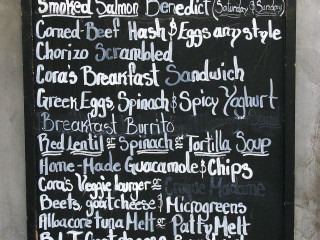 Smoked Salmon Benedict (Saturday & Sunday)
Corned-Beef Hash & Eggs any style
Chorizo Scrambled
Cora's Breakfast Sandwich
Greek Eggs, Spinach & Spicy Yoghurt
Breakfast Burrito
Red Lentil or Spinach or Tortilla Soup
Home-Made Guacamole & Chips
Cora's Veggie burger or Croque Madame
Beets, goat cheese & Microgreens
Albacore tuna Melt or Patty Melt
B.L.T. Goat cheese